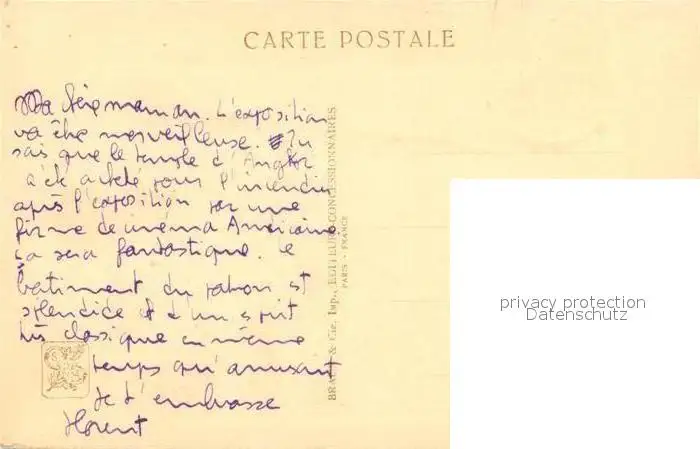 CARTE POSTALE
Ma maman. L'exposition
va être merveilleuse. Tu
sais que le temple d'Angkor
a été acheté pour l'incendier
après l'exposition par une
firme de cinéma Américaine
ça sera fantastique. Le
batiment du patron est
splendide et d'un esprit
très classique en même
temps qu'amusant
Je t'embrasse
Florent
BRAUN & Cie, Imp., EDITEURS-CONCESSIONNAIRES
PARIS - FRANCE
privacy protection
Datenschutz